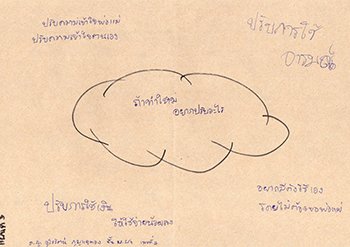 ปรับความเข้าใจพ่อแม่
ปรับความเข้าใจตนเอง
ปรับการใช้
อารมณ์
ถ้าทำใหม่
อยากปรับอะไร
ปรับการใช้เงิน
วิธีใช้จ่ายน้อยลง
อยากมีตังใช้เอง
โดยไม่ต้องขอพ่อแม่